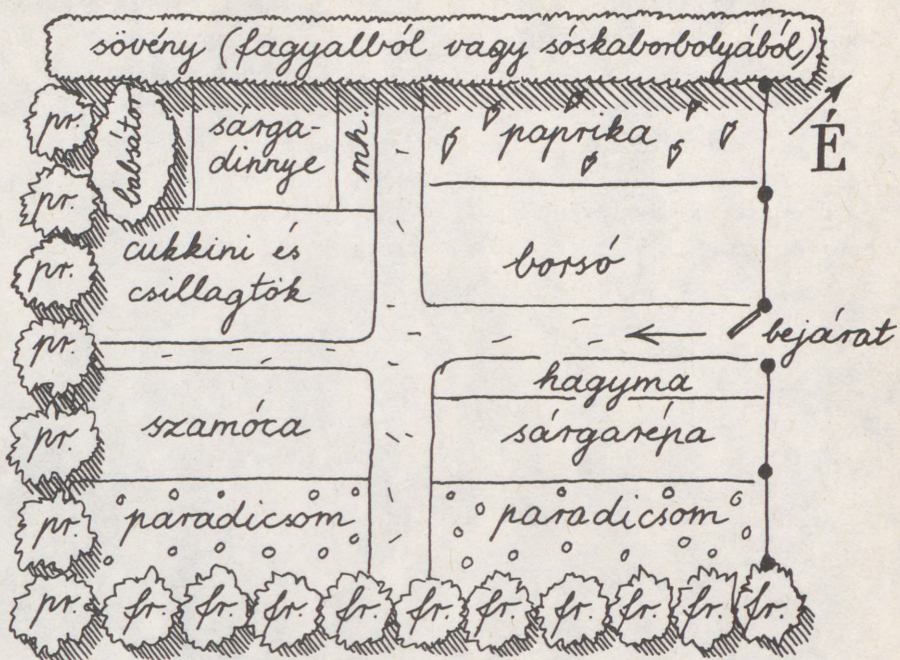 sövény (fagyalból vagy sóskaborbolyából)
pr.
babsátor
sárga-
dinnye
mh.
paprika
É
pr.
cukkini és
csillagtök
borsó
pr.
bejárat
pr.
hagyma
szamóca
sárgarépa
pr.
paradicsom
paradicsom
pr.
pr.
fr.
fr.
fr.
fr.
fr.
fr.
fr.
fr.
fr.
fr.